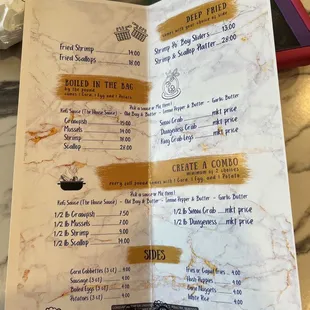 DEEP FRIED
comes with your choice of side
Fried Shrimp 14.00
Fried Scallops 18.00
Shrimp Po' Boy Sliders 13.00
Shrimp & Scallop Platter 28.00
BOILED IN THE BAG
by the pound
comes 1 Corn, 1 Egg, and 1 Potato
(The House Sauce) - Old Bay & Butter - Lemon Pepper & Butter - Garlic Butter
Crawfish 15.00
Mussels 14.00
Shrimp 18.00
Scallop 28.00
Snow Crab mkt price
Dungeness Crab mkt price
King Crab Legs mkt price
CREATE A COMBO
minimum of 2 choices
every half pound comes with 1 Corn, 1 Egg, and 1 Potato
(The House Sauce) - Old Bay & Butter - Lemon Pepper & Butter - Garlic Butter
1/2 lb Crawfish 7.50
1/2 lb Mussels 7.00
1/2 lb Shrimp 9.00
1/2 lb Scallop 14.00
1/2 lb Snow Crab mkt price
1/2 lb Dungeness mkt price
SIDES
Corn Cobbettes (3 ct) 4.00
Sausage (3 ct) 4.00
Boiled Eggs (3 ct) 4.00
Potatoes (3 ct) 4.00
Fries or Cajun Fries 4.00
Hush Puppies 4.00
Corn Nuggets 4.00
White Rice 4.00